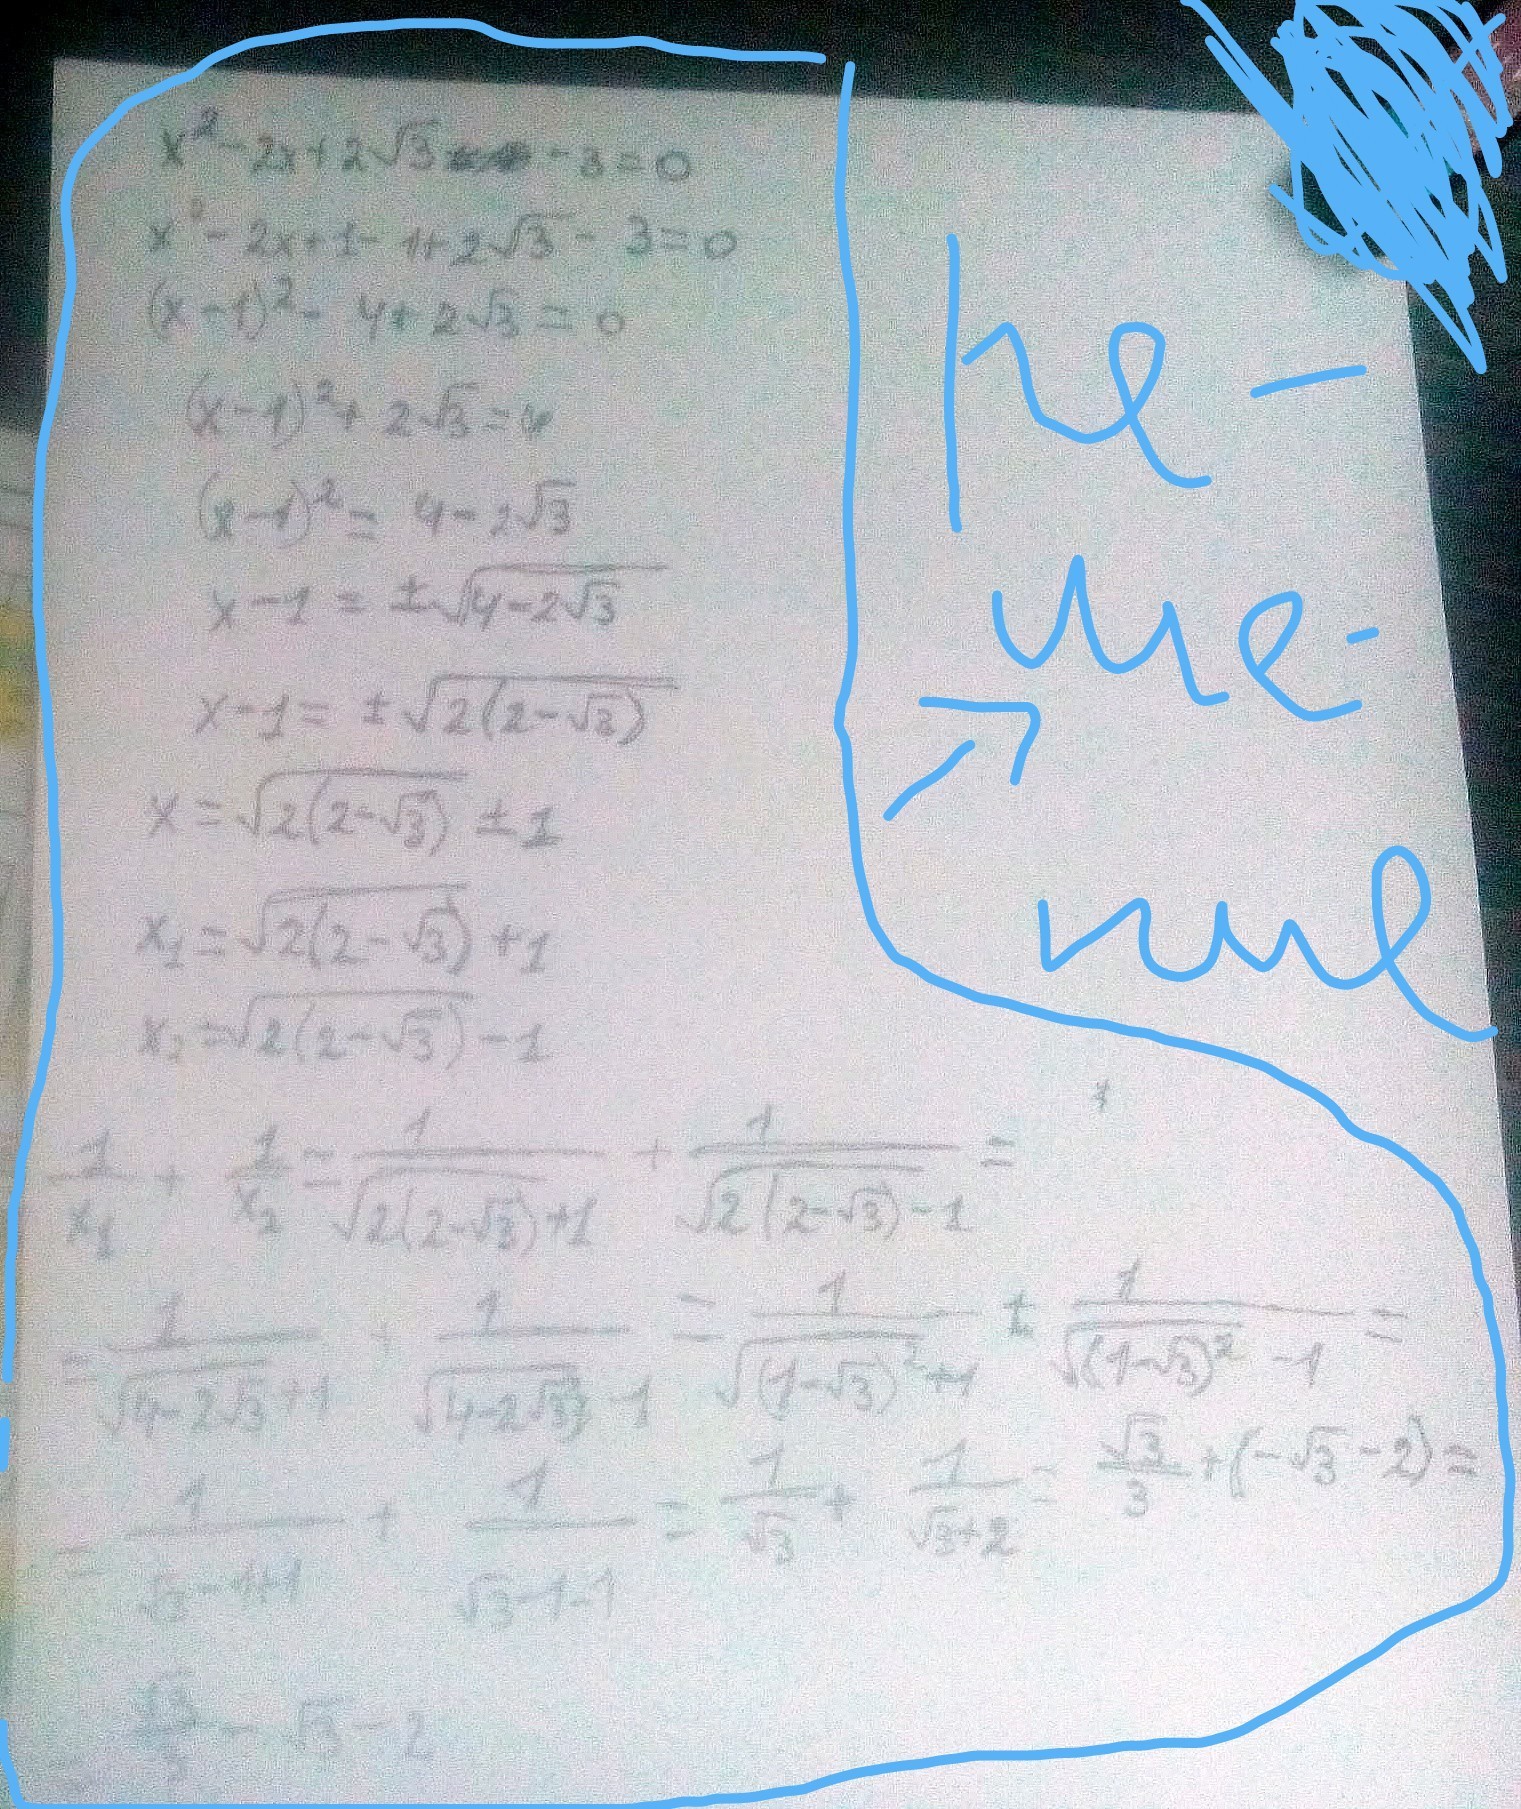 x² - 2x + 2√3 - 3 = 0
x² - 2x + 1 - 1 + 2√3 - 3 = 0
(x - 1)² - 4 + 2√3 = 0
(x - 1)² + 2√3 = 4
(x - 1)² = 4 - 2√3
x - 1 = ±√(4 - 2√3)
x - 1 = ±√(2(2 - √3))
x = √(2(2 - √3)) ± 1
x₁ = √(2(2 - √3)) + 1
x₂ = √(2(2 - √3)) - 1
1/x₁ + 1/x₂ = 1/(√(2(2 - √3)) + 1) + 1/(√(2(2 - √3)) - 1) =
= 1/(√(4 - 2√3) + 1) + 1/(√(4 - 2√3) - 1) = 1/(√((1 - √3)²) + 1) + 1/(√((1 - √3)²) - 1) =
= 1/(√3 - 1 + 1) + 1/(√3 - 1 - 1) = 1/√3 + 1/(√3 + 2) = √3/3 + (-√3 - 2) =
= √3/3 - √3 - 2
ре-
ше-
ние